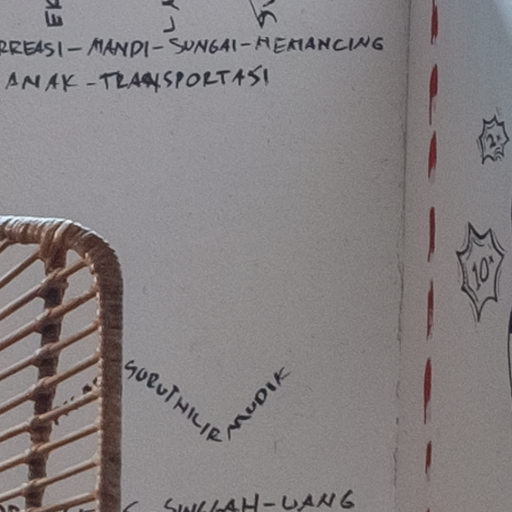 RREASI-MANDI-SUNGAI-MEMANCING
ANAK-TRANSPORTASI
2x
10x
SURUTHILIRMUDIK
SINGGAH-UANG